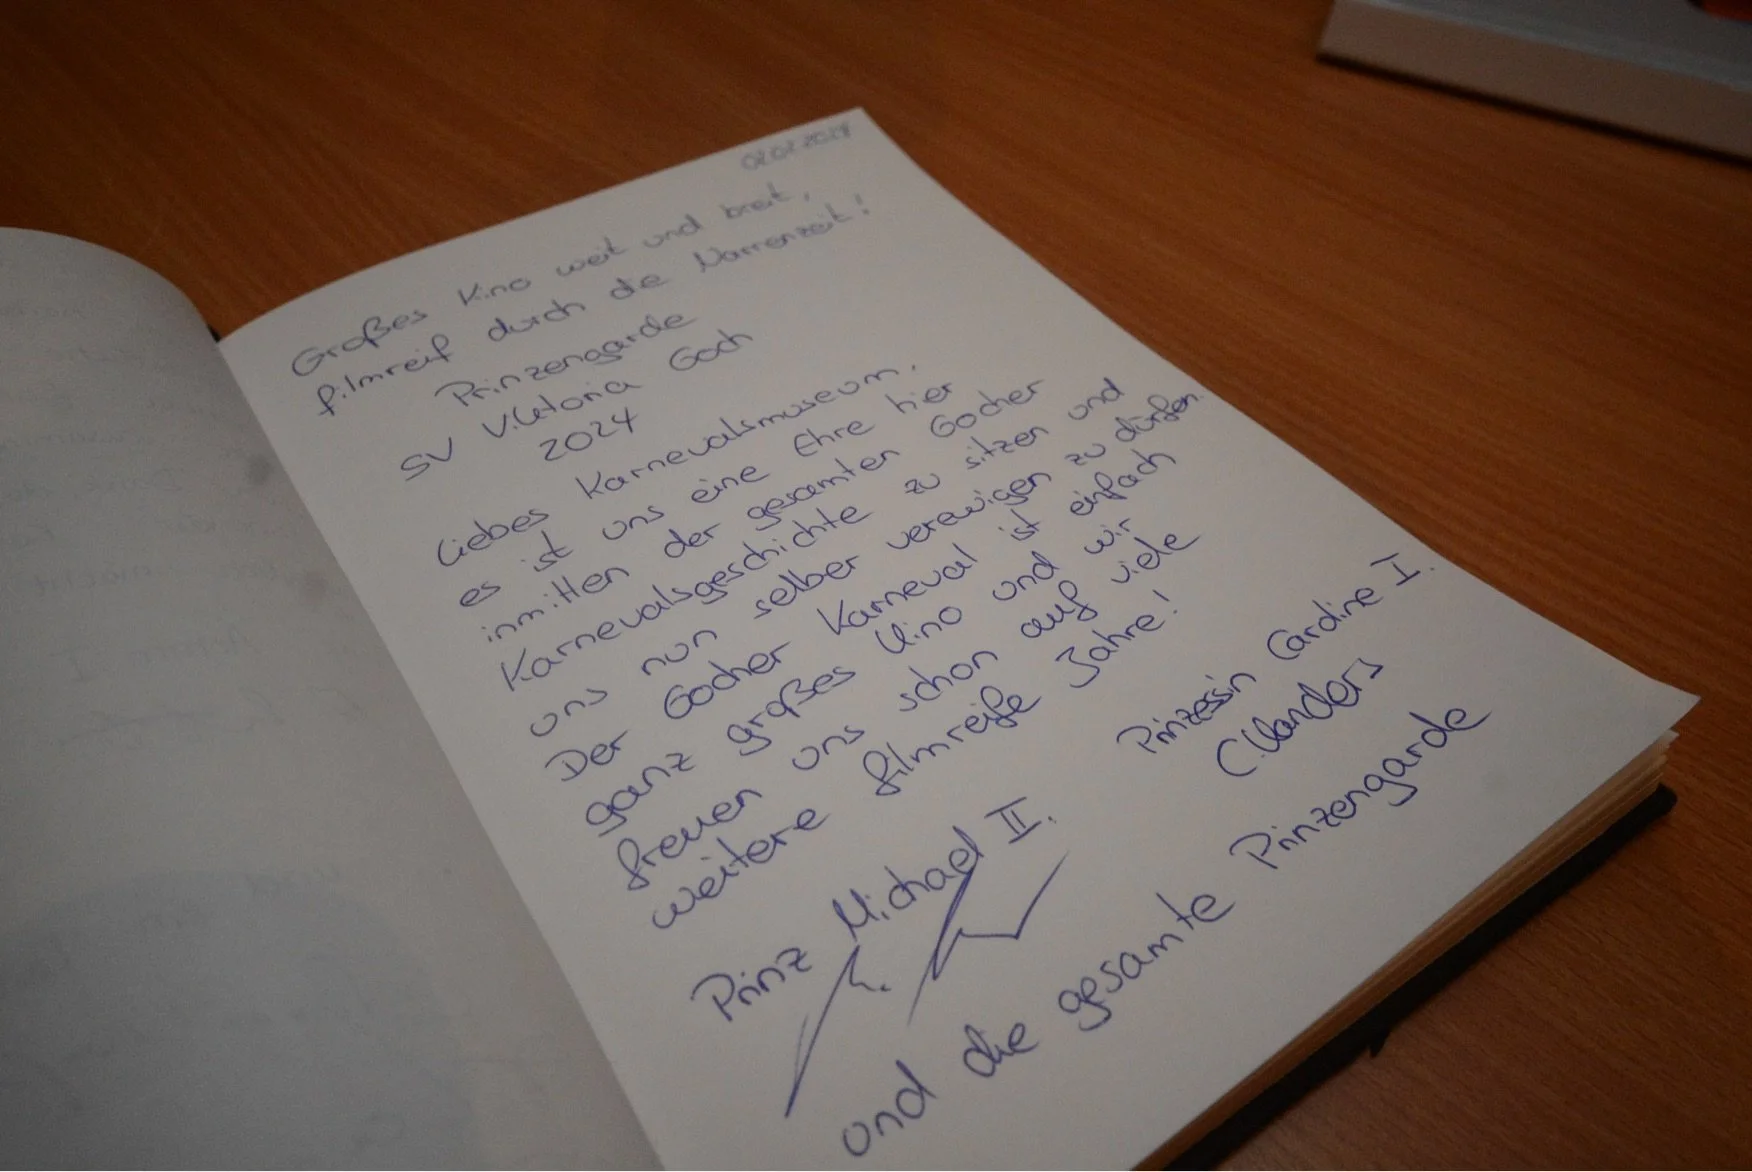 02.02.2024
Großes Kino weit und breit,
filmreif durch die Narrenzeit!
Prinzengarde
SV Viktoria Goch
2024
Liebes Karnevalsmuseum,
es ist uns eine Ehre hier
inmitten der gesamten Gocher
Karnevalsgeschichte zu sitzen und
uns nun selber verewigen zu dürfen.
Der Gocher Karneval ist einfach
ganz großes Kino und wir
freuen uns schon auf viele
weitere filmreife Jahre!
Prinzessin Cardine I.
Prinz Michael II.
und die gesamte Prinzengarde